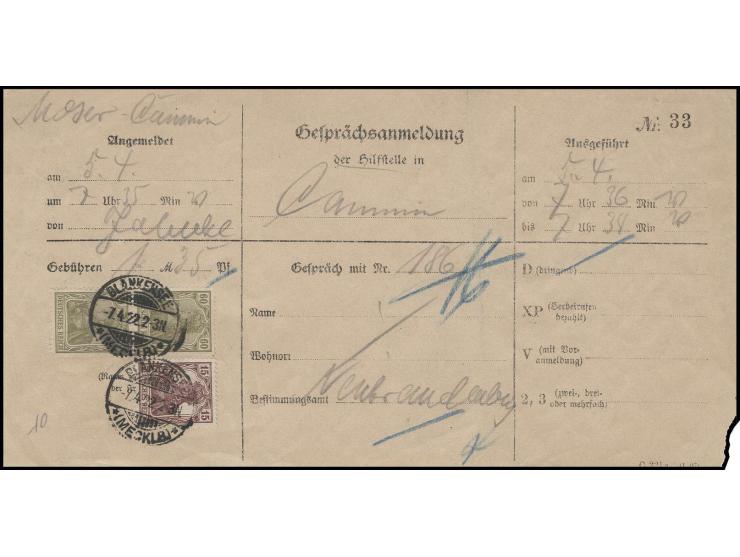 Moser - Cammin
Angemeldet
am 5. 4.
um 7 Uhr 35 Min
von
Gebühren 1 M 35 Pf
Gesprächsanmeldung
der Hilfstelle in
Cammin
Nr. 33
Ausgeführt
am 5. 4.
von 7 Uhr 36 Min
bis 7 Uhr 39 Min
Gespräch mit Nr. 186
Name
Wohnort
Bestimmungsamt Neubrandenburg
D (dringend)
XP (Herbeirufen
bezahlt)
V (mit Vor-
anmeldung)
2, 3 (zwei-, drei-
oder mehrfach)
60 DEUTSCHES REICH 60
BLANKENSEE
-7.4.22.2-3N.
*(MECKLB)*
15 15
BLANKENSEE
*(MECKLB)*
(Name
der
10